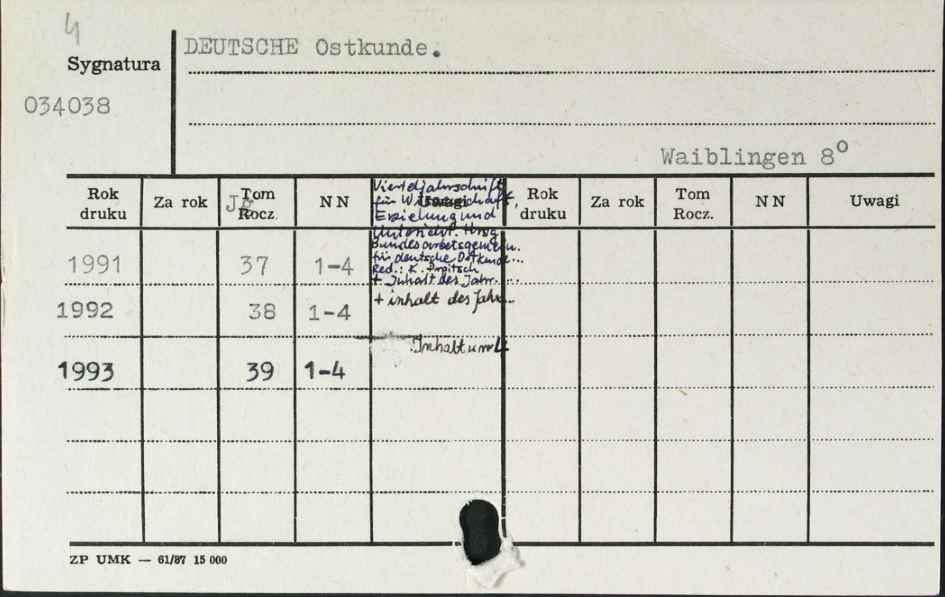 4
Sygnatura
DEUTSCHE Ostkunde.
034038
Waiblingen 8°
Rok druku
Za rok
Jg Tom Rocz.
N N
Uwagi
Rok druku
Za rok
Tom Rocz.
N N
Uwagi
Vierteljahrsschrift
für Wissenschaft,
Erziehung und
Unterricht. Hrsg
Bundesarbeitsgemein.
für deutsche Ostkunde...
Red.: K.
+ Inhalt des Jahr...
1991 37 1-4
+ inhalt des Jahr...
1992 38 1-4
Inhalt
1993 39 1-4
ZP UMK — 61/87 15 000